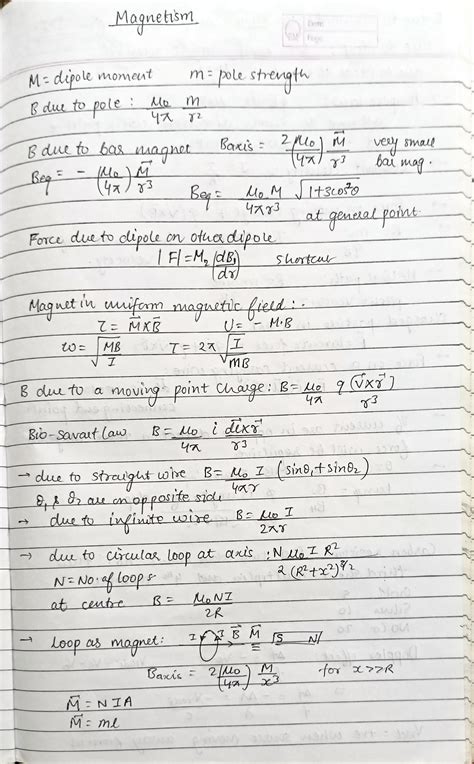 Magnetism
Date
Page
M = dipole moment m = pole strength
B due to pole : μ₀/4π m/r²
B due to bar magnet Baxis = 2(μ₀/4π) M⃗/r³ very small bar mag.
Beq = - (μ₀/4π) M⃗/r³
Beq = μ₀ M/4πr³ √(1+3cos²θ) at general point
Force due to dipole on other dipole
|F| = M₂ (dB₁/dr) shortcut
Magnet in uniform magnetic field : .
τ = M⃗×B⃗ U = - M·B
ω = √(MB/I) T = 2π √(I/MB)
B due to a moving point charge : B = μ₀/4π q(v⃗×r⃗)/r³
Bio-Savart Law B = μ₀/4π i dl⃗×r⃗/r³
→ due to straight wire B = μ₀ I/4πr (sinθ₁+sinθ₂)
θ₁ & θ₂ are on opposite side
→ due to infinite wire B = μ₀ I/2πr
→ due to circular loop at axis : N μ₀ I R²/2(R²+x²)^3/2
N = No. of loops
at centre B = μ₀NI/2R
→ Loop as magnet : I I B⃗ M⃗ ≡ S N
Baxis = 2(μ₀/4π) M/x³ for x>>R
M⃗ = NIA
M⃗ = ml